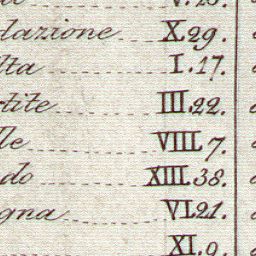 dazione X.29.
lta I.17.
rtite III.22.
lle VIII.7.
do XIII.38.
gna VI.21.
XI.9.